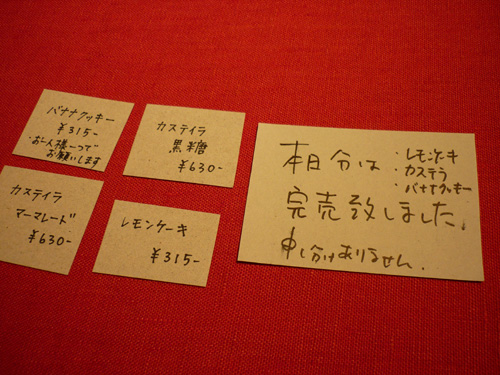 バナナクッキー
¥315-
・お一人様一つで
お願いします
カステイラ
黒糖
¥630-
カステイラ
マーマレード
¥630-
レモンケーキ
¥315-
本日分は
・レモンケーキ
・カステラ
・バナナクッキー
完売致しました。
申し分けありません。